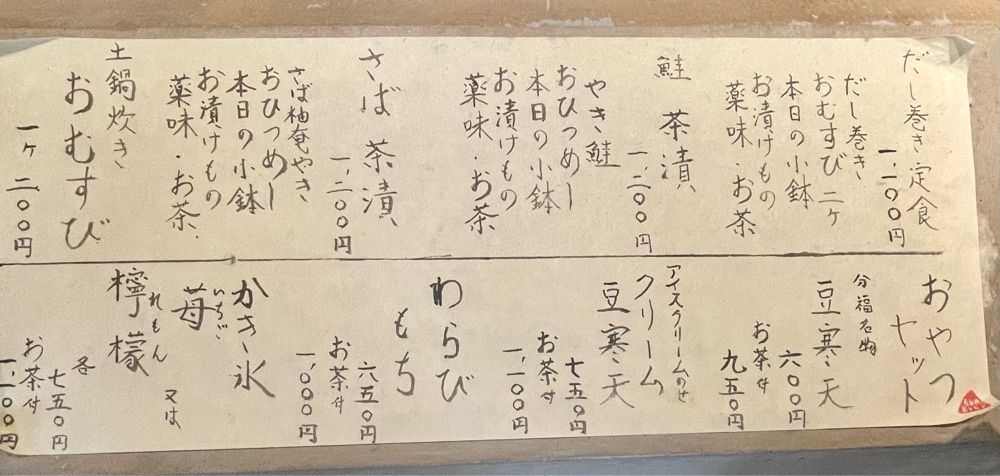 だし巻き定食
一、一〇〇円
だし巻き
おむすび 二ケ
本日の小鉢
お漬けもの
薬味 お茶
鮭 茶漬
一、二〇〇円
やき鮭
おひつめし
本日の小鉢
お漬けもの
薬味・お茶
さば 茶漬
一、二〇〇円
さば柚奄やき
おひつめし
本日の小鉢
お漬けもの
薬味・お茶
土鍋炊き
おむすび
一ヶ 二〇〇円
おやつ
ヤット
分福名物
豆寒天
六〇〇円
お茶付
九五〇円
アイスクリームのせ
クリーム
豆寒天
七五〇円
お茶付
一、一〇〇円
わらび
もち
六五〇円
お茶付
一、〇〇〇円
かき氷
いちご
苺
又は
れもん
檸檬
各 七五〇円
お茶付
一、一〇〇円